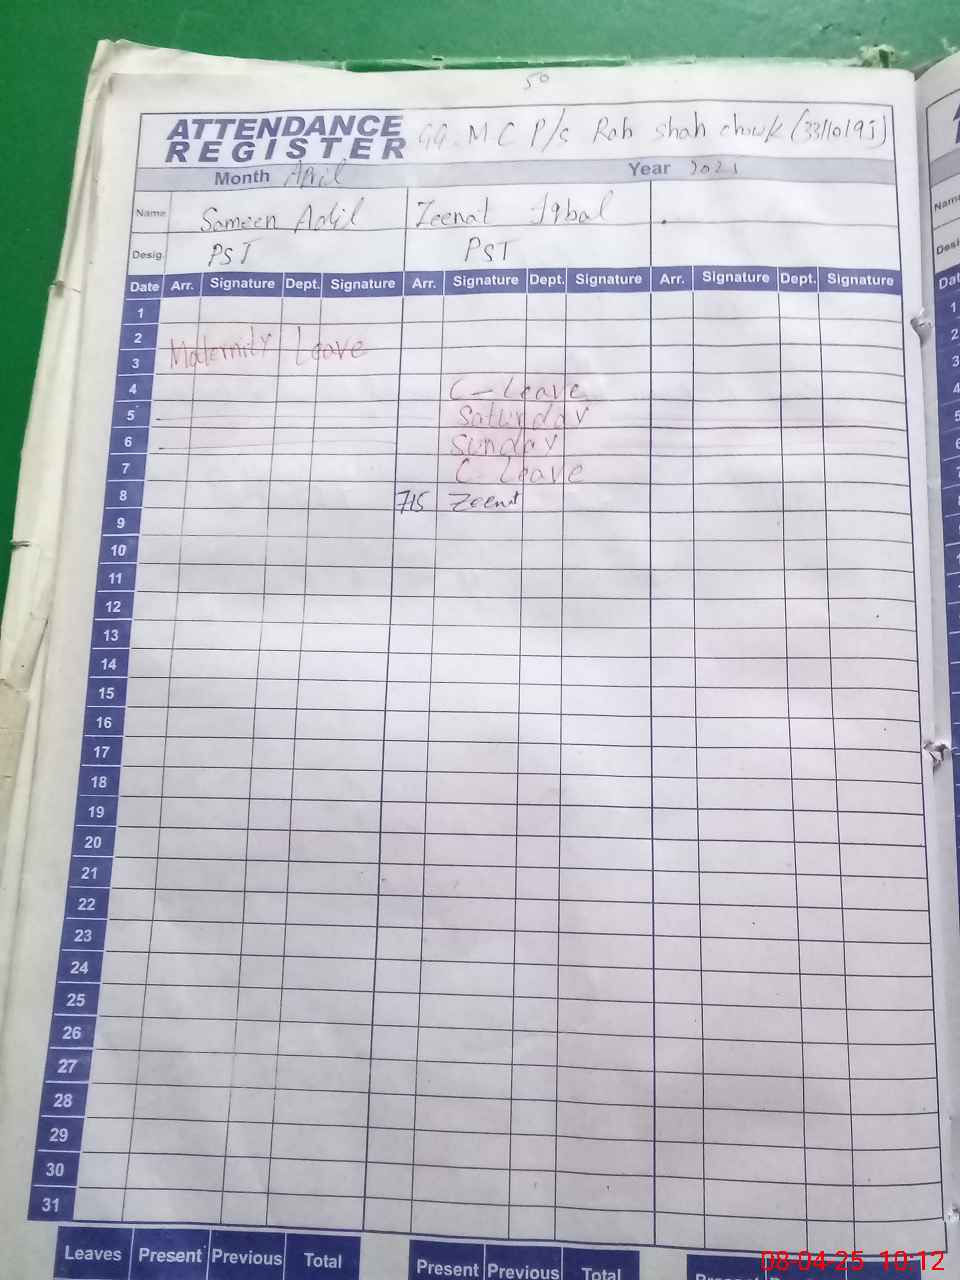 50
ATTENDANCE REGISTER GG.MC P/s Rah Shah chowk (
Month April Year
Name Sameen Zeenat Iqbal
Desig. PST PST
Date Arr. Signature Dept. Signature Arr. Signature Dept. Signature Arr. Signature Dept. Signature
1
2
Maternity Leave
3
4 C-Leave
5 Saturday
6 Sunday
7 C-Leave
8 715 Zeenat
9
10
11
12
13
14
15
16
17
18
19
20
21
22
23
24
25
26
27
28
29
30
31
Leaves Present Previous Total Present Previous Total
08-04-25 10:12